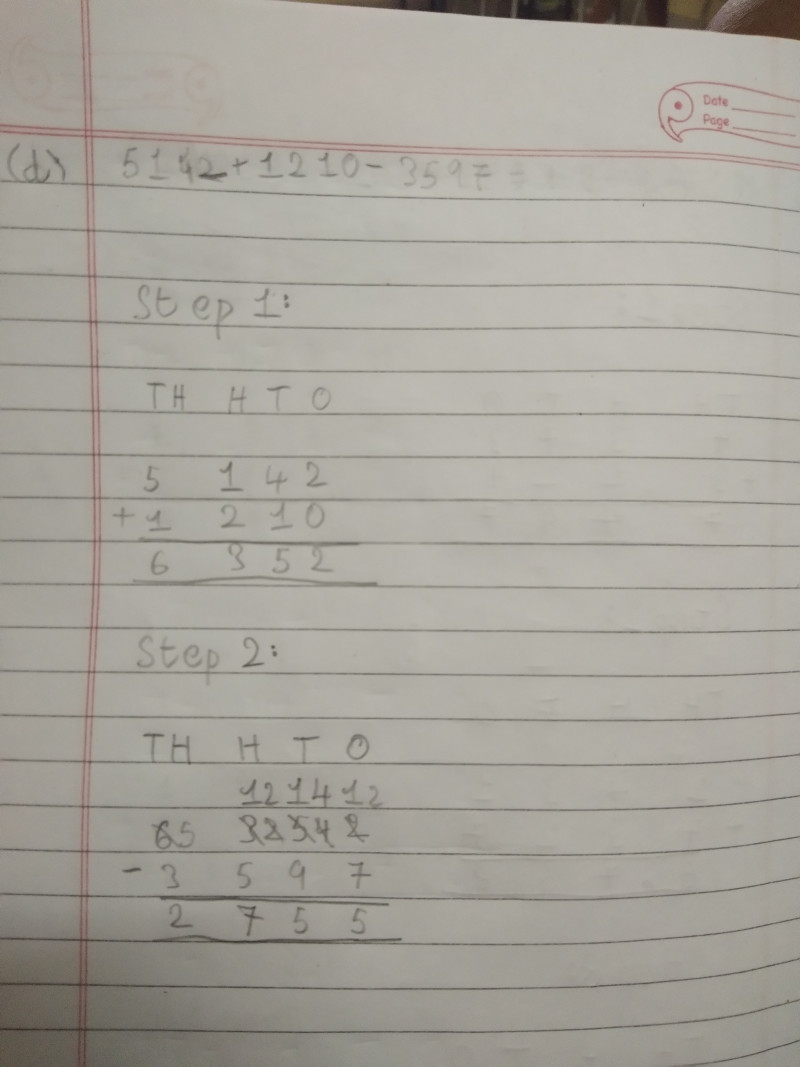 Date
Page
(d) 5142+1210-3597
Step 1:
TH H T O
5 1 4 2
+1 2 1 0
6 3 5 2
Step 2:
TH H T O
12 14 12
65 32 54 2
- 3 5 9 7
2 7 5 5